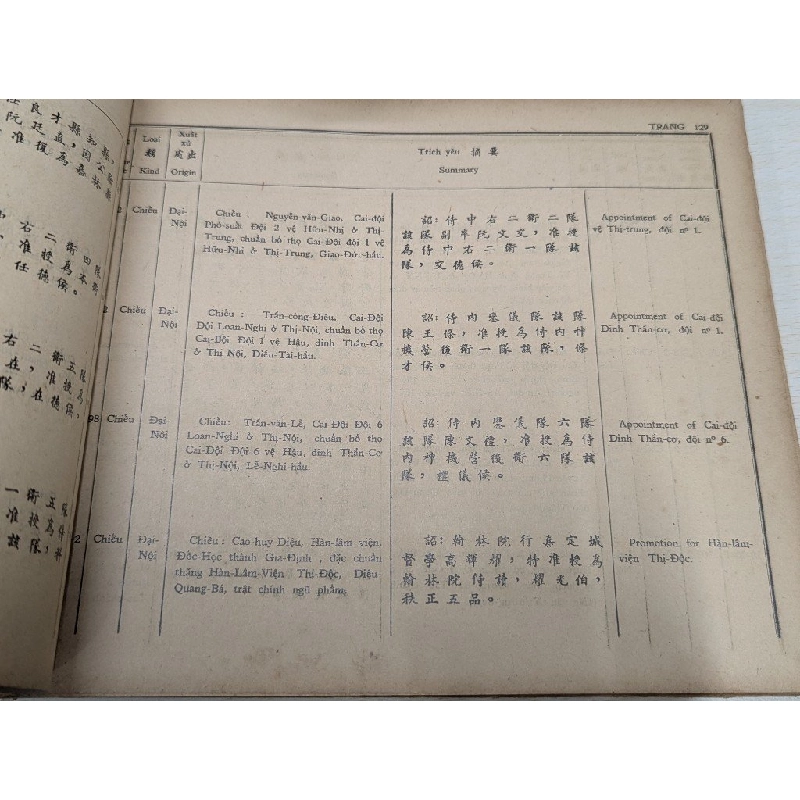 TRANG 129
Loại
類
Kind
Xuất
xứ
處出
Origin
Trích yếu 摘要
Summary
2 Chiếu Đại-
Nội
Chiếu Nguyễn-văn-Giao, Cai-đội
Phó-suất Đội 2 vệ Hữu-Nhị ở Thị-
Trung, chuẩn bổ thọ Cai-Đội đội 1 vệ
Hữu-Nhị ở Thị-Trung, Giao-Đức-hầu.
詔：侍中右二衛二隊
該隊副率阮文交，准授
為侍中右二衛一隊該
隊，交德侯。
Appointment of Cai-đội
vệ Thị-trung, đội nº 1.
2 Chiếu Đại-
Nội
Chiếu : Trần-công-Điều, Cai-Đội
Đội Loan-Nghi ở Thị-Nội, chuẩn bổ thọ
Cai-Đội Đội 1 vệ Hậu, dinh Thần-Cơ
ở Thị Nội, Điều-Tài-hầu.
詔：侍內鑾儀隊該隊
陳 條，准授為侍內神
機營後衛一隊該隊，條
才侯。
Appointment of Cai-đội
Dinh Thần-cơ, đội nº 1.
98 Chiếu Đại
Nội
Chiếu: Trần-văn-Lễ, Cai Đội Đội 6
Loan-Nghi ở Thị-Nội, chuẩn bổ thọ
Cai-Đội Đội 6 vệ Hậu, dinh Thần-Cơ
ở Thị-Nội, Lễ-Nghi-hầu.
詔：侍內 隊六隊
該隊陳文禮，准授為侍
內神機營後衛六隊該
隊，禮儀侯。
Appointment of Cai-đội
Dinh Thần-cơ, đội nº 6.
2 Chiếu Đại-
Nội
Chiếu : Cao-huy-Diệu, Hàn-lâm viện,
Đốc-Học thành Gia-Định , đặc chuẩn
thăng Hàn-Lâm-Viện Thị-Độc, Diệu
Quang-Bá, trật chánh ngũ phẩm.
詔：翰林院行嘉定城
督學高輝耀，特准授為
翰林院侍讀，耀光伯，
秩正五品。
Promotion for Hàn-lâm-
viện Thị-Độc.